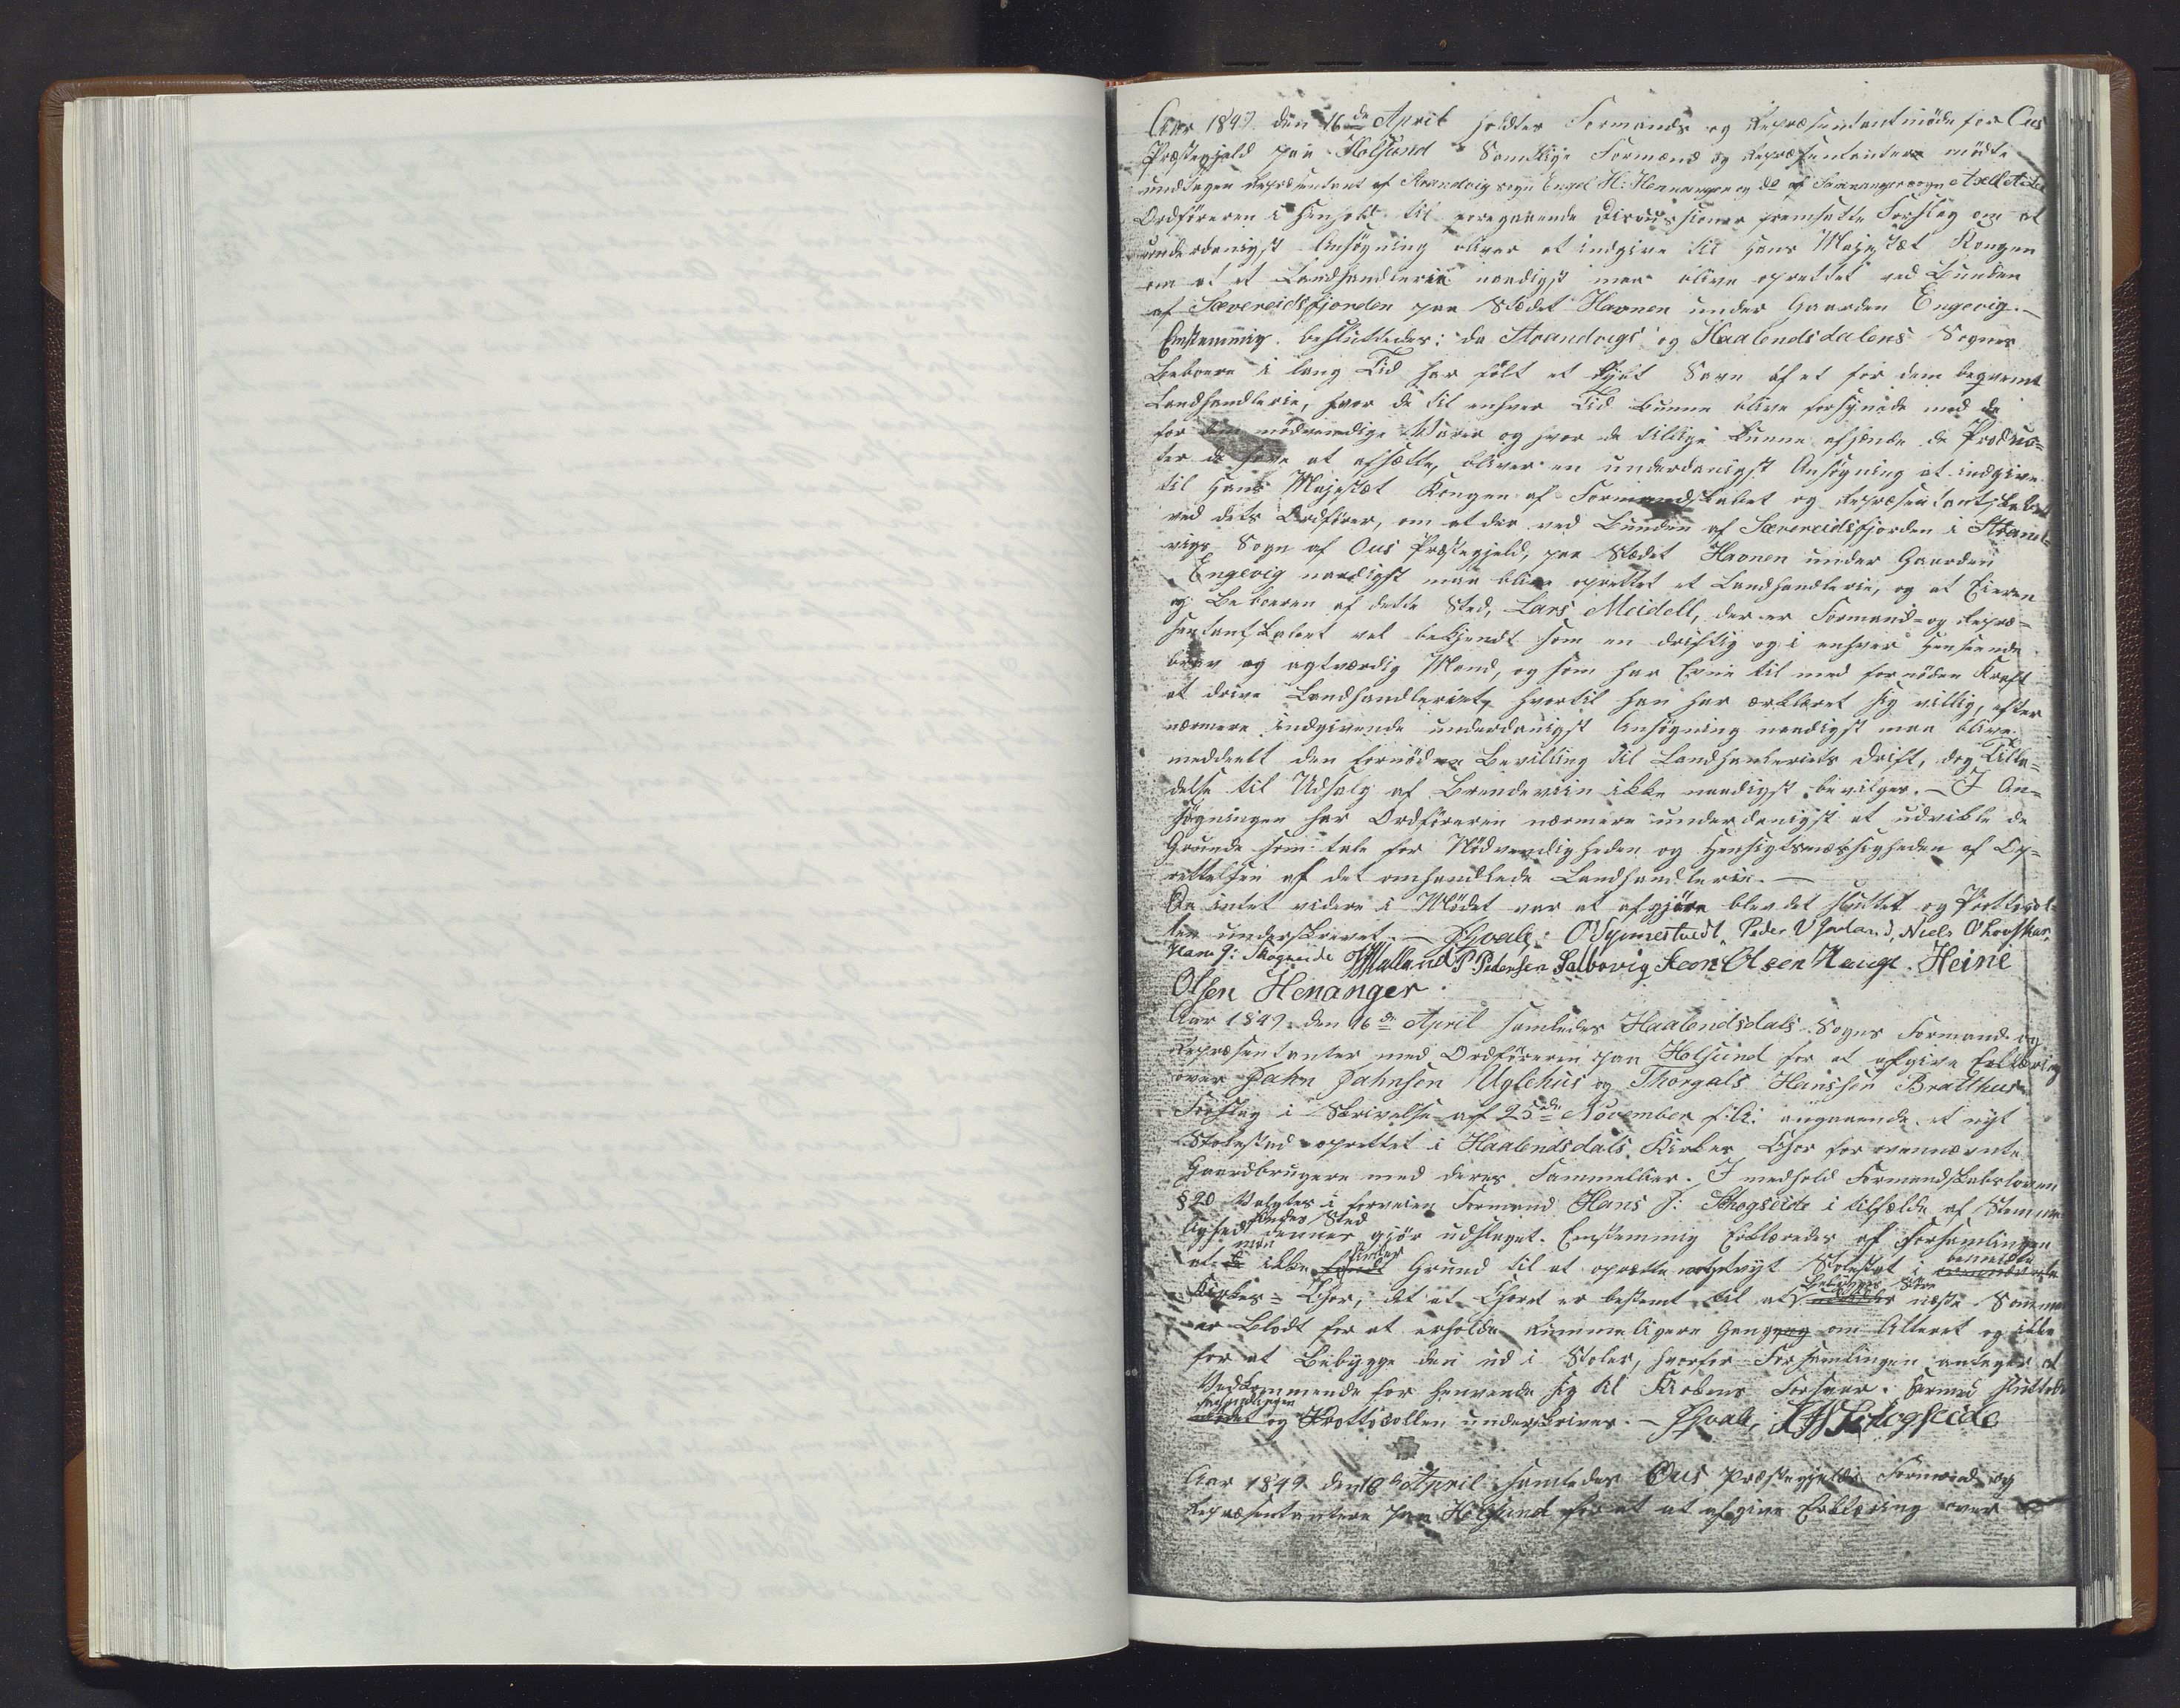 Aar 1849 den 16de April holdtes Formands og Repræsentantmöde for Ous
Præstegjeld paa Holsund Samtlige Formænd og Repræsentanter mödte
undtagen Repræsentant af Strandvig sogn Engel H: Hennanger og do af Samnanger sogn
Ordföreren i Henhold til foregaaende Discussioner fremsatte Forslag om at
underdanigst Ansögning bliver at indgive til Hans Majestæt Kongen
om at et Landhandlerie naadigst maa blive oprettet ved Bunden
af Sævereidsfjorden paa Stædet Havnen under Gaarden Engevig. -
Enstemmig besluttedes: da Strandvigs og Haalandsdalens Sognes
Beboere i lang Tid har fölt et Savn af et for dem beqvemt
Landhandlerie, hvor de til enhver Tid kunne blive forsynede med de
for dem nödvendige Varer og hvor de tillige kunne afhænde de Produc-
ter de have at afsætte, bliver en underdanigst Ansögning at indgive
til Hans Majestæt Kongen af Formandskabet og Repræsentantskabet
ved dets Ordförer, om at der ved Bunden af Sævereidsfjorden i Strand-
vigs Sogn af Ous Præstegjeld, paa Stædet Havnen under Gaarden
Engevig naadigst maa blive oprettet et Landhandlerie, og at Eieren
og Beboeren af dette Sted, Lars Meidell, der er Formand- og Repræ-
sentantskabet vel bekjendt som en driftig og i enhver Henseende
brav og agtværdig Mand, og som har Evne til med fornöden Kraft
at drive Landhandleriet, hvortil han har erklæret sig villig, efter
nærmere indgivende underdanigst Ansögning naadigst maa blive
meddeelt den fornödne Bevilling til Landhandleriets Drift, dog Tilla-
delse til Udsalg af Brændeviin ikke naadigst bevilges. - I An-
sögningen har Ordföreren nærmere underdanigst at udvikle de
Grunde som tale for Nödvendigheden og Hensigtsmæssigheden af Op-
rettelsen af det omhandlede Landhandlerie. -
Da intet videre i Mödet var at afgjöre blev det sluttet og Prottocol-
len underskrevet. - Hvale. O Symestvedt, Peder V Hauland, Niels O
Hans J: Skogseide P. Pedersen Salbovig Steen Olsen Hauge. Heine
Olsen Henanger.
Aar 1849 den 16de April samledes Haalendsdals Sogns Formænd og
Repræsentanter med Ordföreren paa Holsund for at afgive Erklæring
over Jahn Jahnsen Uglehus og Thorgals Hanssen Bratthus
Forslag i Skrivelse af 25de November f: A: angaaende et nyt
Stolestad oprettet i Haalendsdals Kirkes Chor for ovennævnte
Gaardbrugere med deres Fammellier. I medhold Formandskabsloven
§ 20 Valgtes i forveien Formand Hans J: Skogseide i tilfælde af Stemme
finder Sted
Lighed dennes gjör udslaget. Eenstemmig Erklæredes af forsamlingen
man finder benævnte
at ikke Grund til at oprette noget nyt Stolestad i
Kirkes- Chor, det at Choret er bestemt til at næste Sommer
er Blodt for at erholde rummeligere Gang om Alteret og ikke
for at Bebygge den ud i Stoler, hvorfor Forsamlingen antager at
Vedkommende for henvende sig til Kirkens Forsvar. Hermed sluttede
Forhandlingen
mödet og Prottocollen underskrives. - Hvale, H J Skogseide
Aar 1849 den 16de April samledes Ous Præstegjelds Formænd og
Repræsentantere paa Holsund for at at afgive Erklæring over